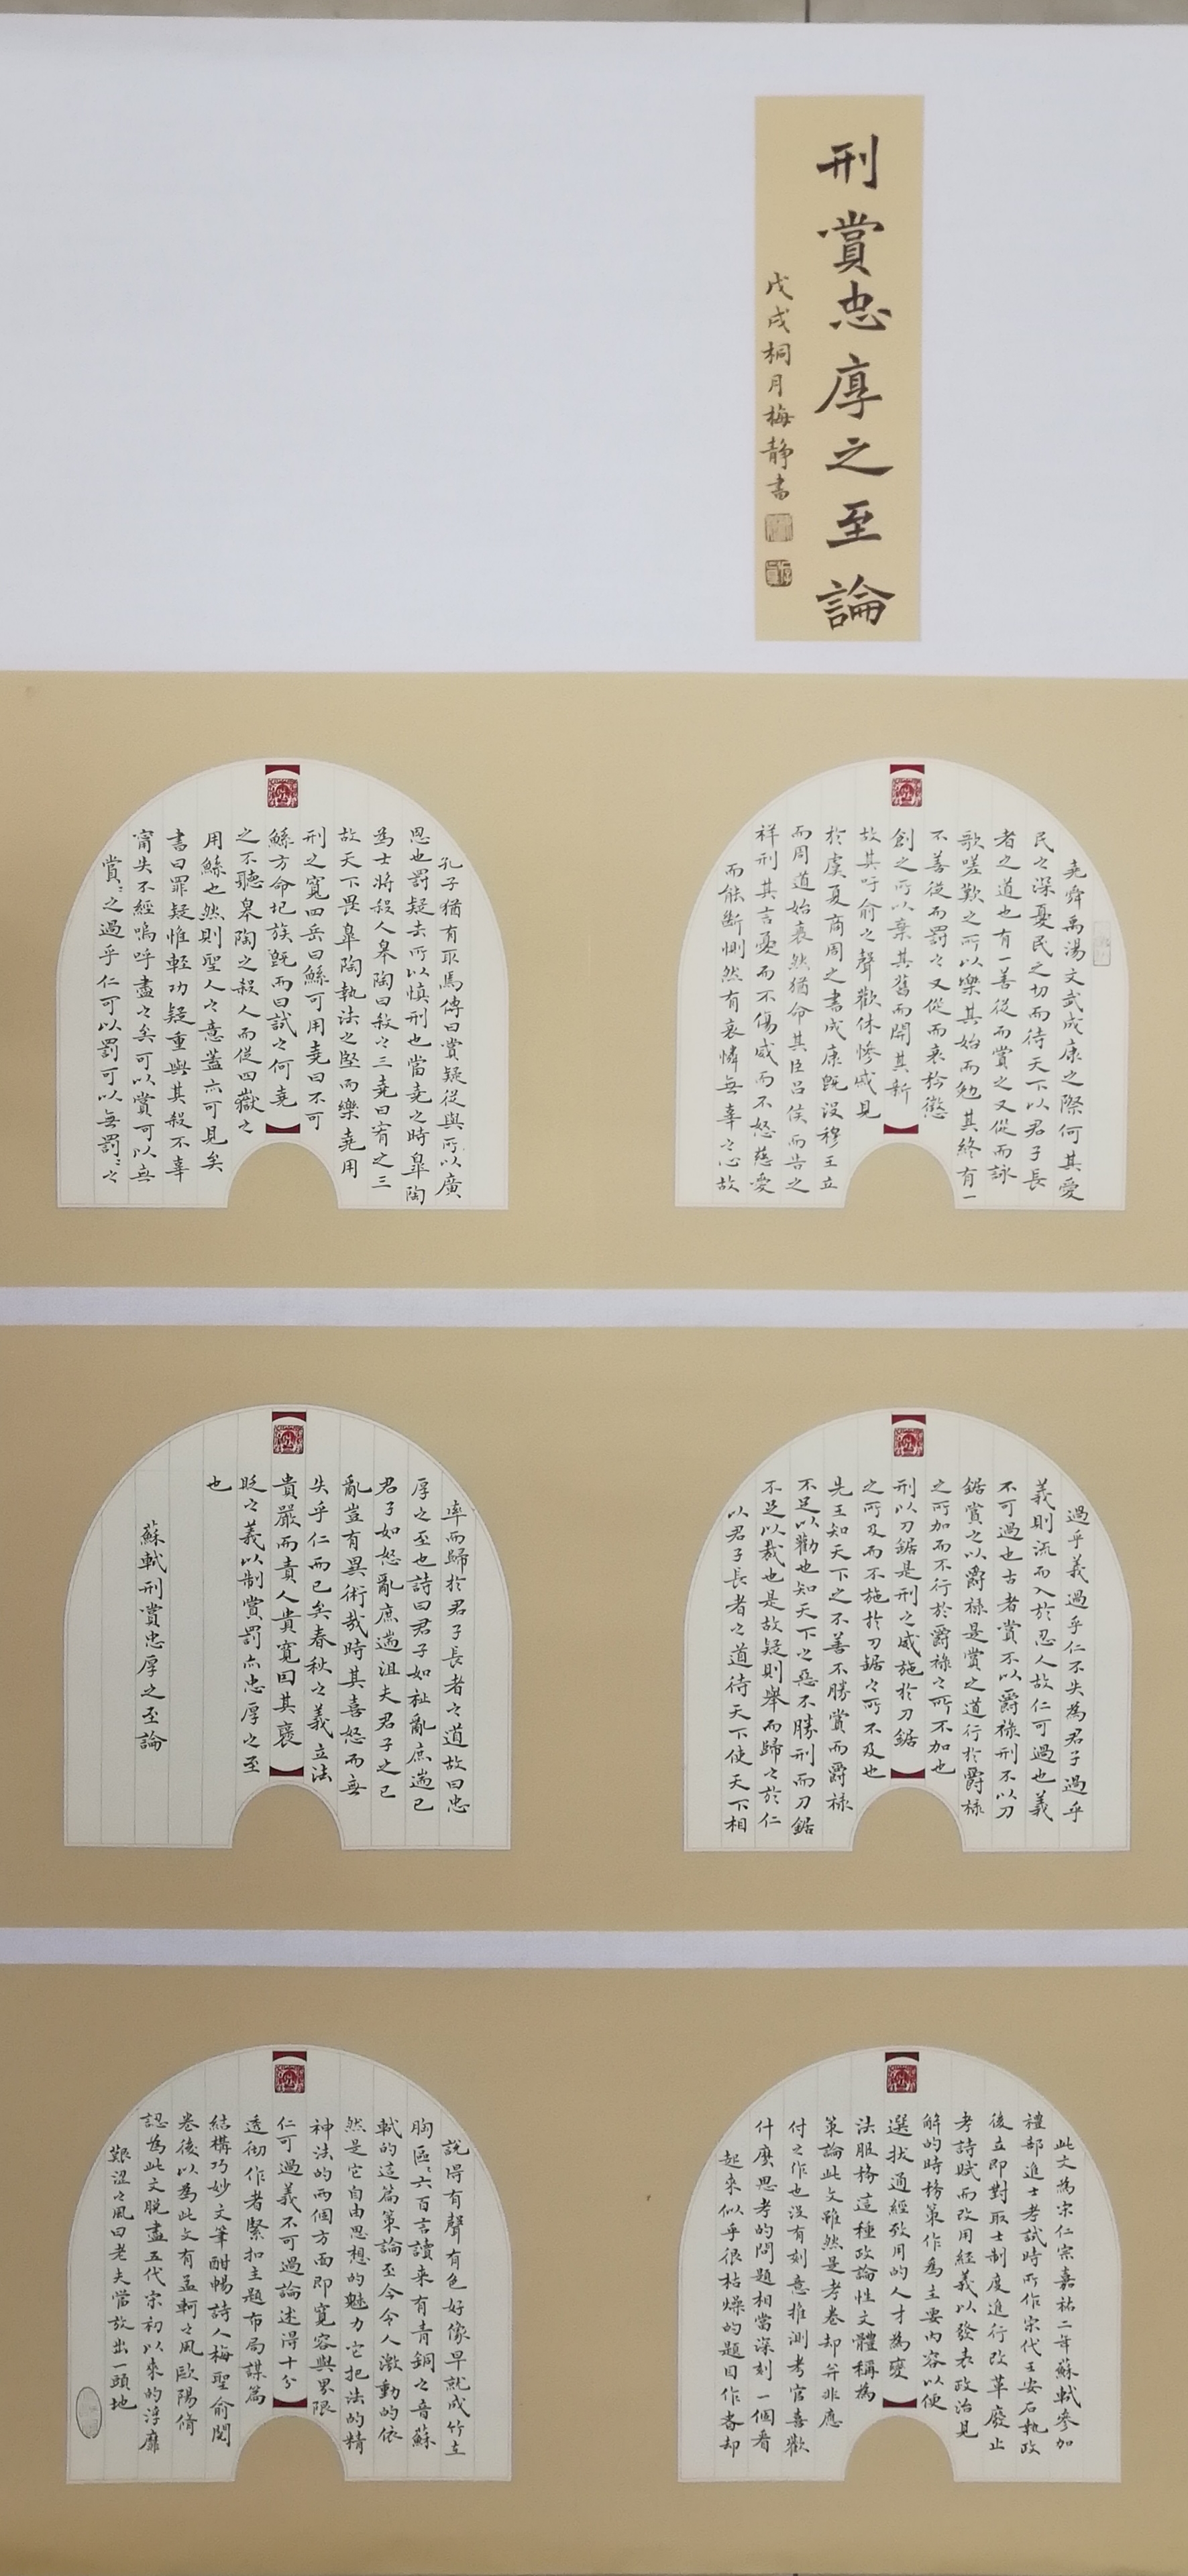 刑賞忠厚之至論
戊戌桐月梅静書
堯舜禹湯文武成康之際何其愛
民之深憂民之切而待天下以君子長
者之道也有一善從而賞之又從而詠
歌嗟歎之所以樂其始而勉其終有一
不善從而罰之又從而哀矜懲
創之所以棄其舊而開其新
故其吁俞之聲歡休慘戚見
於虞夏商周之書成康既没穆王立
而周道始衰然猶命其臣吕侯而告之
祥刑其言憂而不傷威而不怒慈愛
而能斷惻然有哀憐無辜之心故
孔子猶有取焉傳曰賞疑從與所以廣
恩也罰疑去所以慎刑也當堯之時皐陶
為士將殺人皋陶曰殺之三堯曰宥之三
故天下畏皐陶執法之堅而樂堯用
刑之寬四岳曰鯀可用堯曰不可
鯀方命圮族既而曰試之何堯
之不聽皋陶之殺人而從四嶽之
用鯀也然則聖人之意蓋亦可見矣
書曰罪疑惟輕功疑重與其殺不辜
甯失不經嗚呼盡之矣可以賞可以無
賞〻之過乎仁可以罰可以無罰〻之
過乎義過乎仁不失為君子過乎
義則流而入於忍人故仁可過也義
不可過也古者賞不以爵禄刑不以刀
鋸賞之以爵禄是賞之道行於爵禄
之所加而不行於爵祿之所不加也
刑以刀鋸是刑之威施於刀鋸
之所及而不施於刀鋸之所不及也
先王知天下之不善不勝賞而爵禄
不足以勸也知天下之惡不勝刑而刀鋸
不足以裁也是故疑則舉而歸之於仁
以君子長者之道待天下使天下相
率而歸於君子長者之道故曰忠
厚之至也詩曰君子如祉亂庶遄已
君子如怒亂庶遄沮夫君子之已
亂豈有異術哉時其喜怒而無
失乎仁而已矣春秋之義立法
貴嚴而責人貴寬因其襃
貶之義以制賞罰亦忠厚之至
也
蘇軾刑賞忠厚之至論
此文為宋仁宗嘉祐二年蘇軾參加
禮部進士考試時所作宋代王安石執政
後立即對取士制度進行改革廢止
考詩賦而改用經義以發表政治見
解的時務策作為主要内容以便
選拔通經致用的人才為變
法服務這種政論性文體稱為
策論此文雖然是考卷却并非應
付之作也没有刻意推測考官喜歡
什麽思考的問題相當深刻一個看
起來似乎很枯燥的題目作者却
說得有聲有色好像早就成竹在
胸區〻六百言讀來有青銅之音蘇
軾的這篇策論至今令人激動的依
然是它自由思想的魅力它把法的精
神法的兩個方面即寬容與界限
仁可過義不可過論述得十分
透彻作者緊扣主題布局謀篇
結構巧妙文筆酣暢詩人梅聖俞閲
卷後以為此文有孟軻之風歐陽脩
認為此文脱盡五代宋初以來的浮靡
艱澀之風曰老夫當放出一頭地